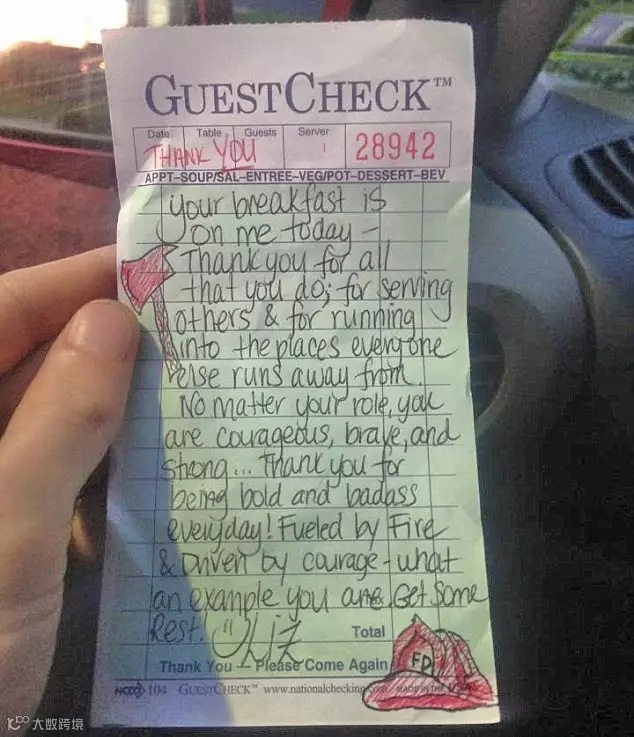 GUESTCHECK™
Date Table Guests Server
THANK YOU 28942
APPT–SOUP/SAL–ENTREE–VEG/POT–DESSERT–BEV
your breakfast is
on me today –
Thank you for all
that you do; for serving
others & for running
into the places everyone
else runs away from.
No matter your role, you
are courageous, brave, and
strong... Thank you for
being bold and badass
everyday! Fueled by Fire
& Driven by courage - what
an example you are. Get some
Rest. Liz
Total
Thank You – Please Come Again
FD
104 GUESTCHECK™ www.nationalchecking.com MADE IN THE
大数跨境